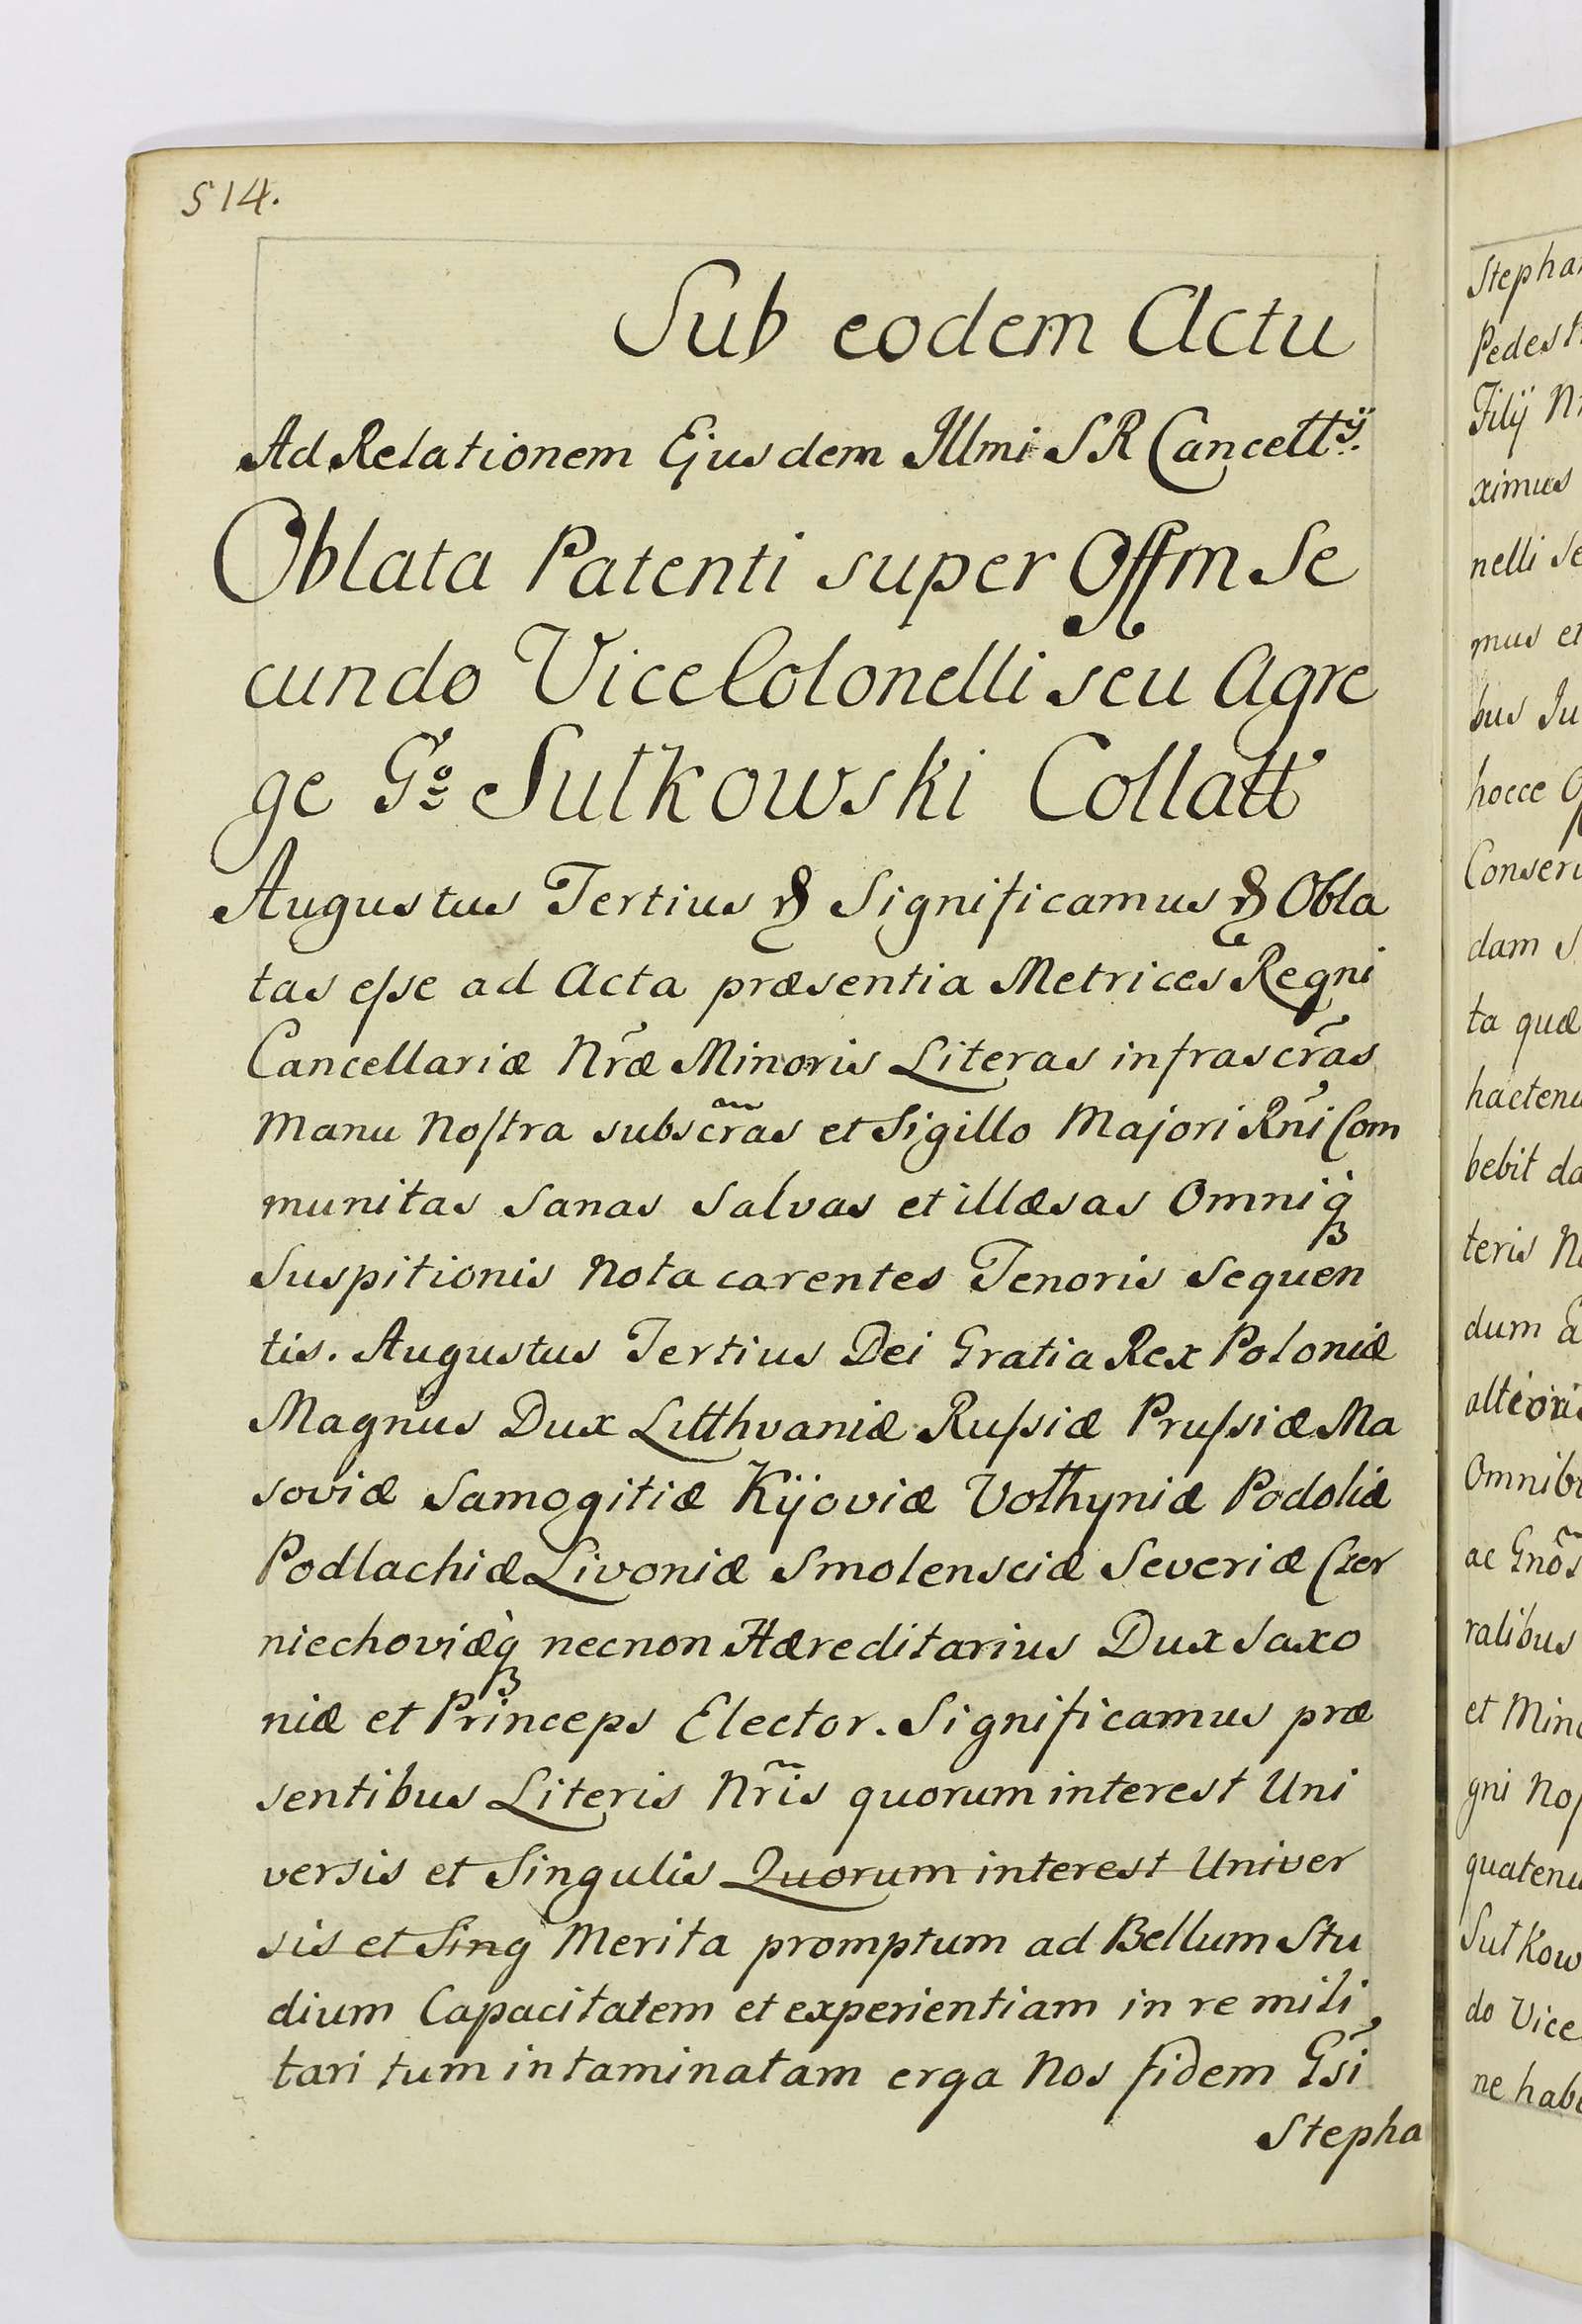 514.
Sub eodem Actu
Ad Relationem Ejusdem Illmi S R Cancellrÿ.
Oblata Patenti super Offm Se
cundo ViceColonelli seu Agre
ge Go Sułkowski Collatt
Augustus Tertius & Significamus & Obla
tas eſse ad Acta præsentia Metrices Regni
Cancellariæ Nr̃æ Minoris Literas infrascr̃as
Manu Noſtra subscr̃as et Sigillo Majori Rñi Com
munitas Sanas Salvas et illæsas Omniq̀ꝫ
Suspitionis Nota carentes Tenoris Sequen
tis. Augustus Tertius Dei Gratia Rex Poloniæ
Magnus Dux Litthvaniæ Ruſsiæ Pruſsiæ Ma
soviæ Samogitiæ Kijoviæ Vołhyniæ Podoliæ
Podlachiæ Livoniæ Smolensciæ Severiæ Czer
niechoviæq̀ꝫ necnon Hæreditarius Dux Saxo
niæ et Princeps Elector. Significamus præ
sentibus Literis Nr̃is quorum interest Uni
versis et Singulis Quorum interest Univer
sis et Sing Merita promptum ad Bellum Stu
dium Capacitatem et experientiam in re mili
tari tum intaminatam erga Nos fidem Gs̃i
Stepha
Stepha
Pedest
Filÿ N
ximus
nelli Se
mus et
bus Ju
hocce
Conser
dam S
ta quæ
hactenu
bebit da
teris N
dum
Omnib
ac Gnõs
ralibus
et Mino
gni Noſ
quatenu
Sułkow
do Vice
ne hab